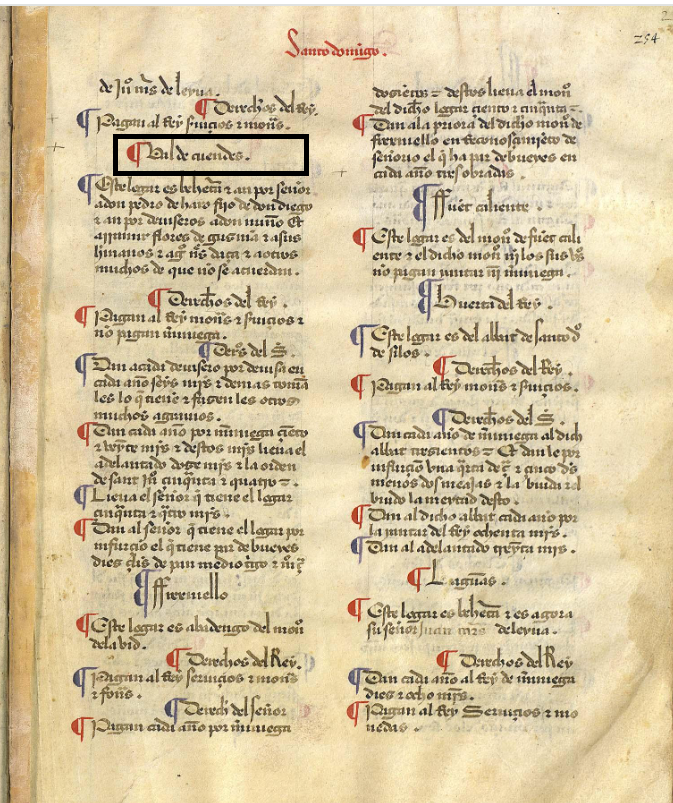 Santo domigo.
254
de Ju° ms de leyua.
Derechos del Rey.
Pagan al Rey seruicios & mons.
Val de cuendes.
Este logar es behetⁱa & an por señor
a don pedro de haro fijo de don diego
& an por deuiseros a don nuño &
a
flores de gusma & a sus
hmanos & a
& a otros
muchos de que no se acuerdan.
Derechos del Rey.
Pagan al Rey mons & seruicios &
no pagan miniega.
Ders del S.
Dan a cada deuisero por deuisa en
cada año seys mrs & demas toma
les lo q tiene & fazen les otros
muchos agrauios.
Dan cada año por miniega ciento
& veynte mrs & destos mrs lieua el
adelantado doze mrs & la orden
de sant Ju° cinquenta & quatro
Lieua el señor q tiene el logar
cinquenta & qtro mrs.
Dan al señor q tiene el logar por
infurcio el q tiene par de bueyes
dies
de pan medio tgo &
ffreniello
Este logar es abadengo del mon
de la vid.
Derechos del Rey.
Pagan al Rey seruicios & mons
& fons.
Derech del señor
Pagan cada año por miniega
dosietos
destos lieua el mon
del dicho logar ciento & cinquenta
Dan a la priora del dicho mon de
freniello en reconosçimieto de
señorio el q ha par de bueyes en
cada año tres obradas.
ffuet caliente.
Este logar es del mon de fuet cali
ente & el dicho mon ni los sus vs
no pagan yantar ni miniega.
Huerta del Rey.
Este logar es del abbat de santo d°
de silos.
Derechos del Rey.
Pagan al Rey mons & seruicios.
Derechos del S.
Dan cada año de miniega al dich
abbat tresientos
Et dan le por
infurcion vna qrta de
& cinco ds
menos dos meajas & la biuda & el
biudo la meytad desto.
Dan al dicho abbat cada año por
la yantar del Rey ochenta mrs.
Dan al adelantado treynta mrs.
Lagunas.
Este logar es behetⁱa & es agora
su señor Juan
de leyua.
Derechos del Rey
Dan cada año al Rey de miniega
dies & ocho mrs.
Pagan al Rey Seruiçios & mo
nedas.